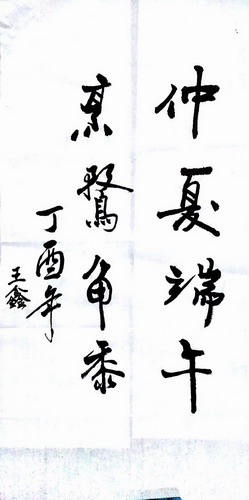 仲夏端午
烹鶩角黍
丁酉年
王鑫